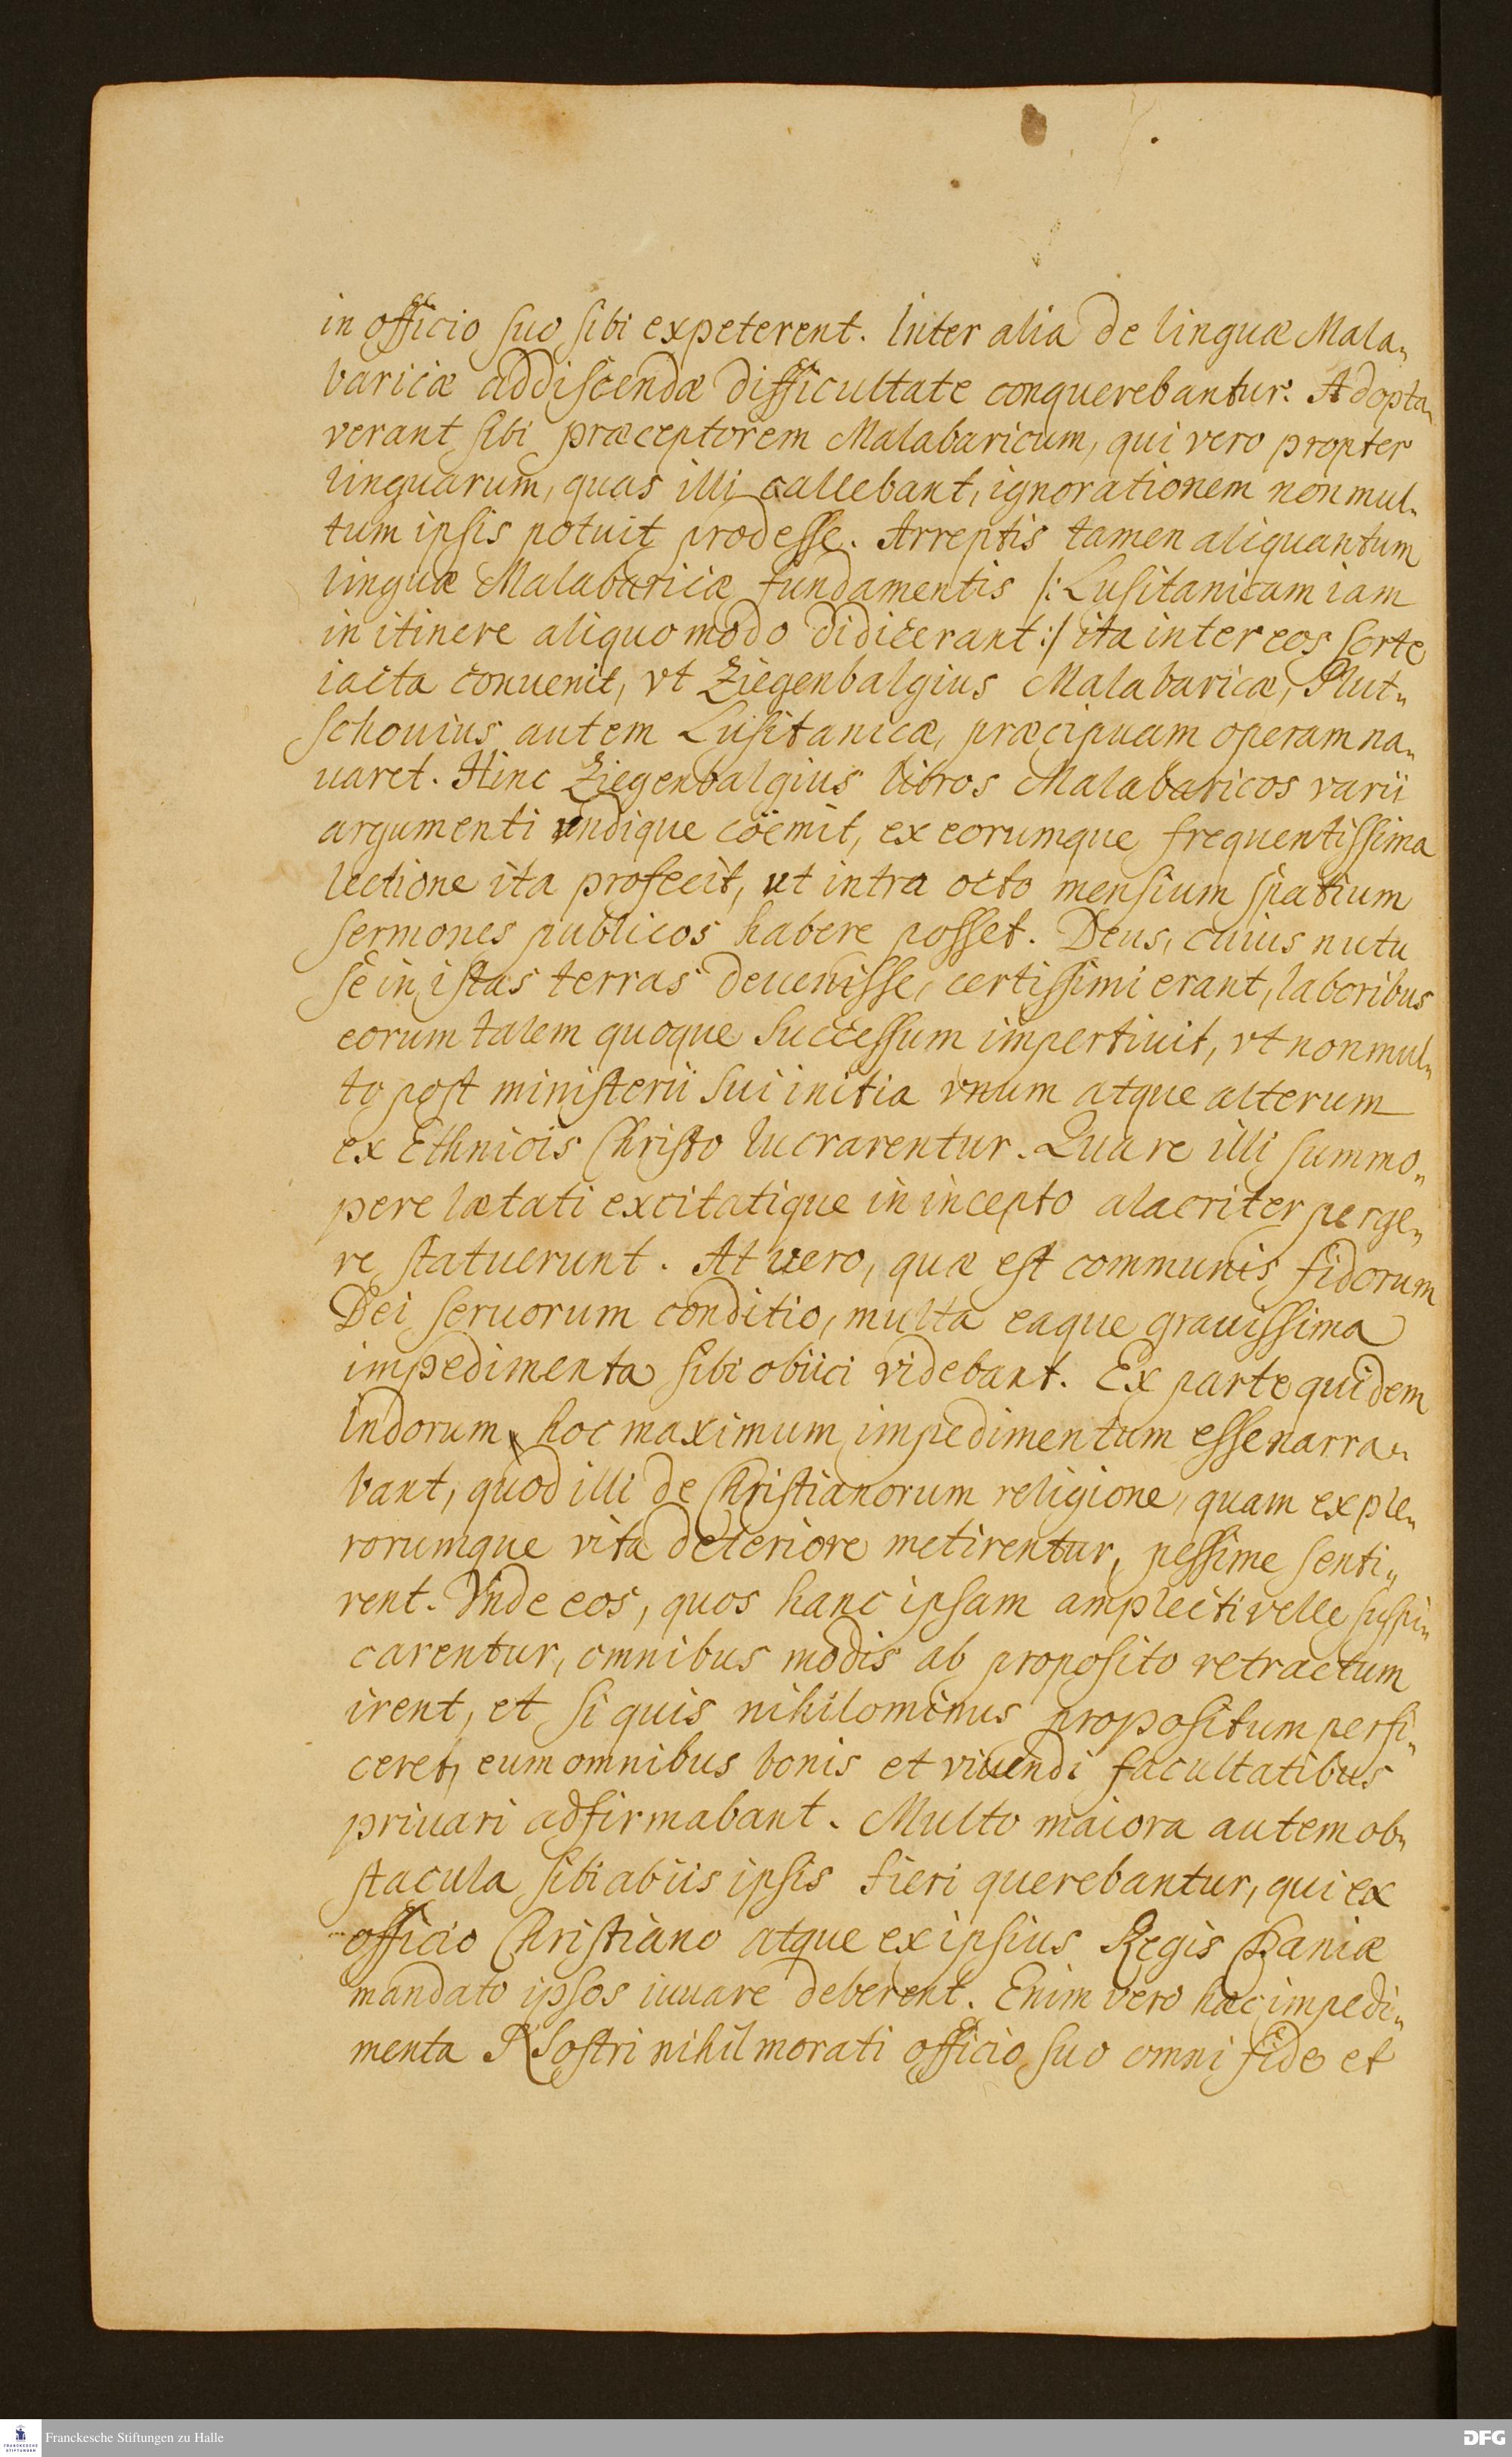 in officio suo sibi expeterent. Inter alia de linguæ Mala„
baricæ addiscendæ difficultate conquerebantur. Adopta„
verant sibi præceptorem Malabaricum, qui vero propter
linguarum, quas illi callebant, ignorationem non mul„
tum ipsis potuit prodesse. Arreptis tamen aliquantum
linguæ Malabaricæ fundamentis /: Lusitanicam iam
in itinere aliquo modo didicerant :/ ita inter eos sorte
iacta conuenit, vt Ziegenbalgius Malabaricæ, Plut„
schouius autem Lusitanicæ, præcipuam operam na„
uaret. Hinc Ziegenbalgius libros Malabaricos varii
argumenti undique coëmit, ex eorumque frequentissima
lectione ita profecit, ut intra octo mensium spatium
sermones publicos habere posset. Deus, cuius nutu
se in istas terras deuenisse, certissimi erant, laboribus
eorum talem quoque successum impertiuit, vt non mul„
to post ministerii sui initia vnum atque alterum
ex Ethnicis Christo lucrarentur. Quare illi summo„
pere lætati excitatique in incepto alacriter perge„
re statuerunt. At uero, quæ est communis fidorum
Dei seruorum conditio, multa eaque grauissima
impedimenta sibi obiici videbant. Ex parte quidem
Indorum, hoc maximum impedimentum esse narra„
bant, quod illi de Christianorum religione, quam ex ple„
rorumque vita deteriore metirentur, pessime senti„
rent. Vnde eos, quos hanc ipsam amplecti velle suspi„
carentur, omnibus modis ab proposito retractum
irent, et si quis nihilominus propositum perfi„
ceret, eum omnibus bonis et viuendi facultatibus
priuari adfirmabant. Multo maiora autem ob„
stacula sibi ab iis ipsis fieri querebantur, qui ex
officio Christiano atque ex ipsius Regis Daniæ
mandato ipsos iuuare deberent. Enim vero hæc impedi„
menta Nostri nihil morati officio suo omni fide et
Franckesche Stiftungen zu Halle
DFG